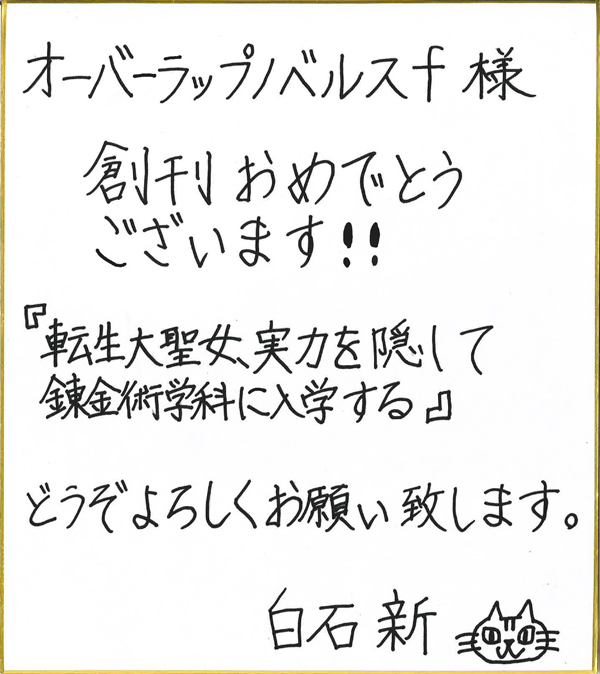 オーバーラップノベルスf 様
創刊おめでとう
ございます!!
『転生大聖女、実力を隠して
錬金術学科に入学する』
どうぞよろしくお願い致します。
白石 新